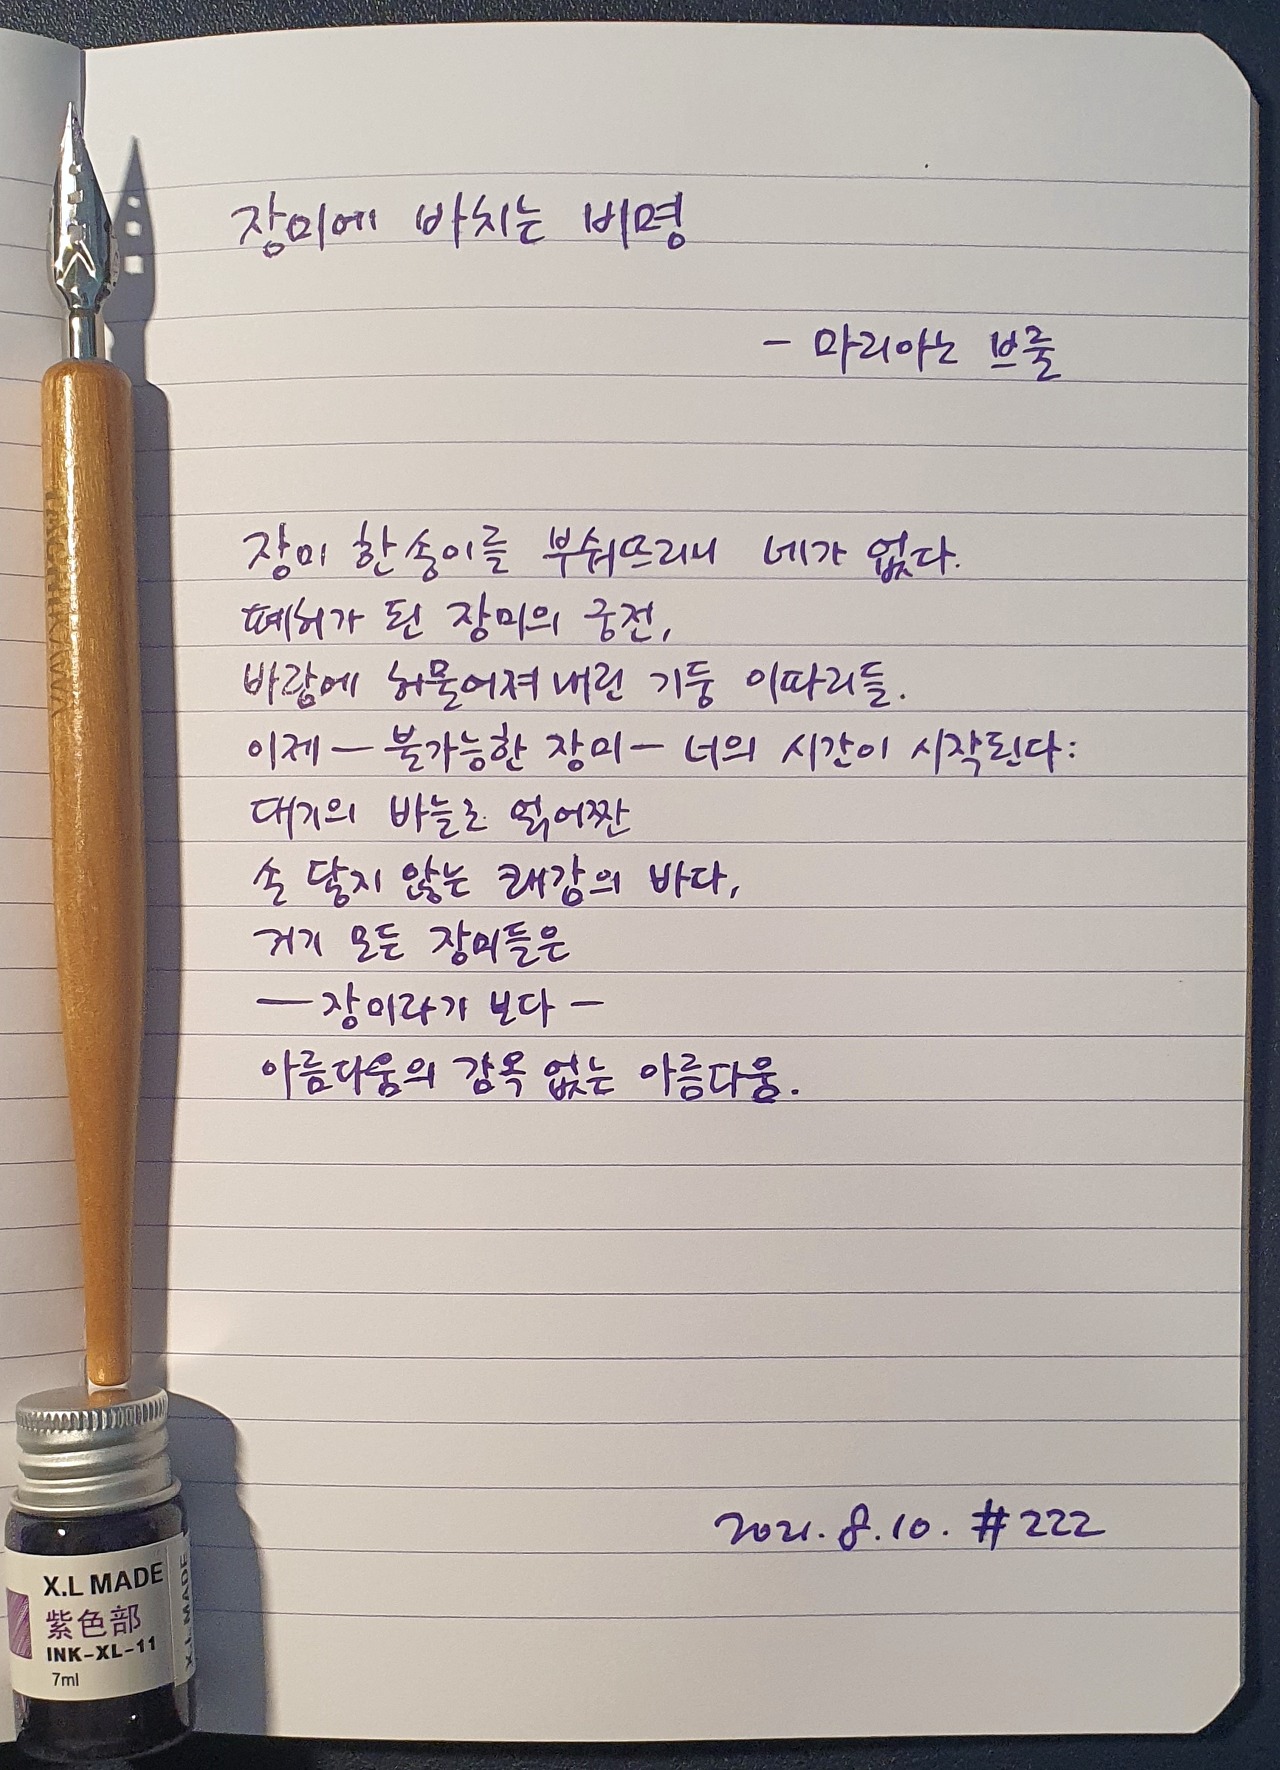 장미에 바치는 비명
- 마리아노 브룰
장미 한송이를 부숴뜨리니 네가 없다.
폐허가 된 장미의 궁전,
바람에 허물어져 내린 기둥 이따리들.
이제 — 불가능한 장미 — 너의 시간이 시작된다:
대기의 바늘로 얽어짠
손 닿지 않는 쾌감의 바다,
거기 모든 장미들은
— 장미라기 보다 —
아름다움의 감옥 없는 아름다움.
2021. 8. 10. #222
X.L MADE
紫色部
INK-XL-11
7ml
X.L MADE